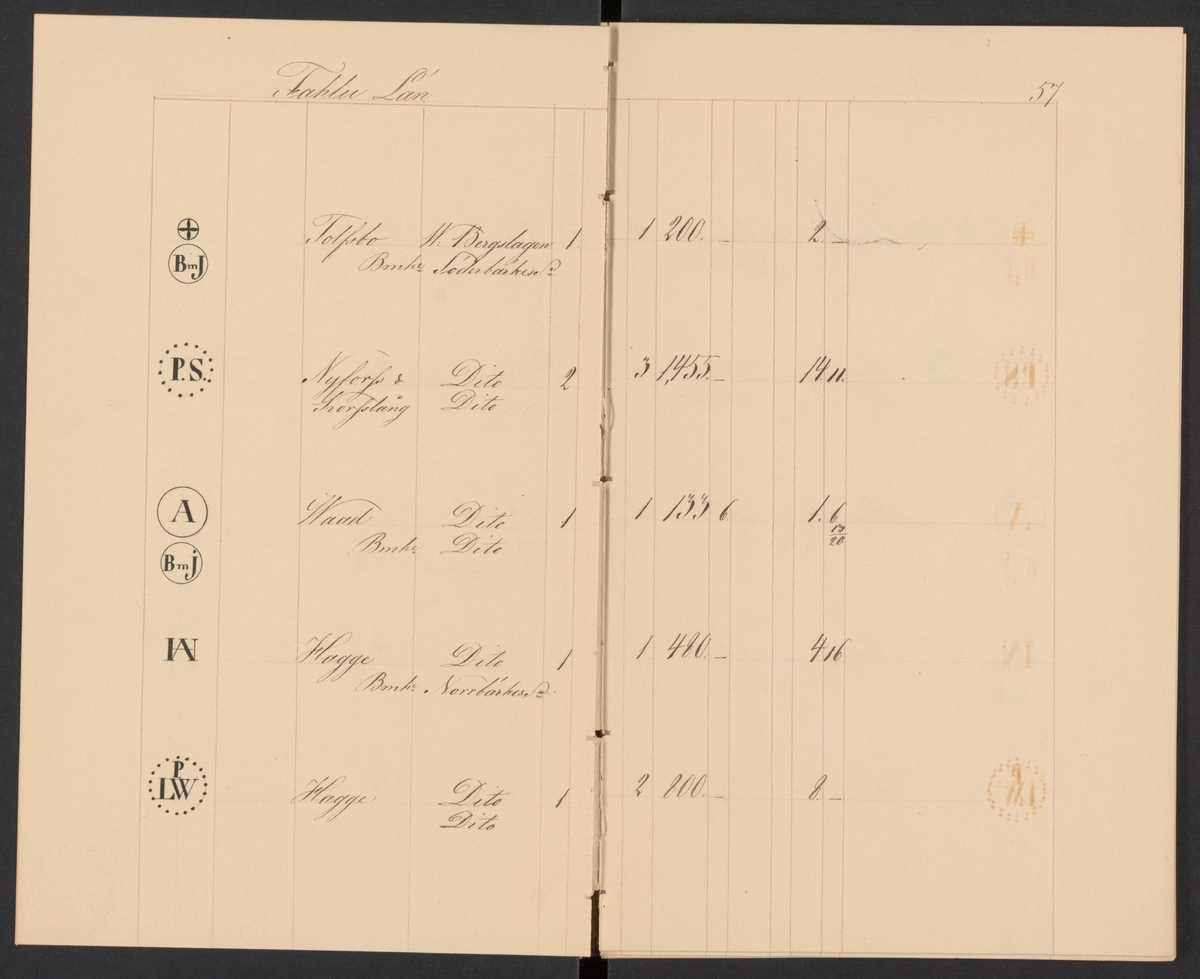 Fahlu Län 57
Tolfsbo W. Bergslagen 1 1 200. — 2. —
BmJ Bmkr Söderbärkes Sn
P.S. Nyforss & Dito 2 3 1,455. — 14 11.
Korsslång Dito
A Waad Dito 1 1 133 6 1. 6 13/20
BmJ Bmkr Dito
IAN Hagge Dito 1 1 480. — 4 16
Bmkr Norrbärkes Sn
P
LW Hagge Dito 1 2 800. — 8. —
Dito